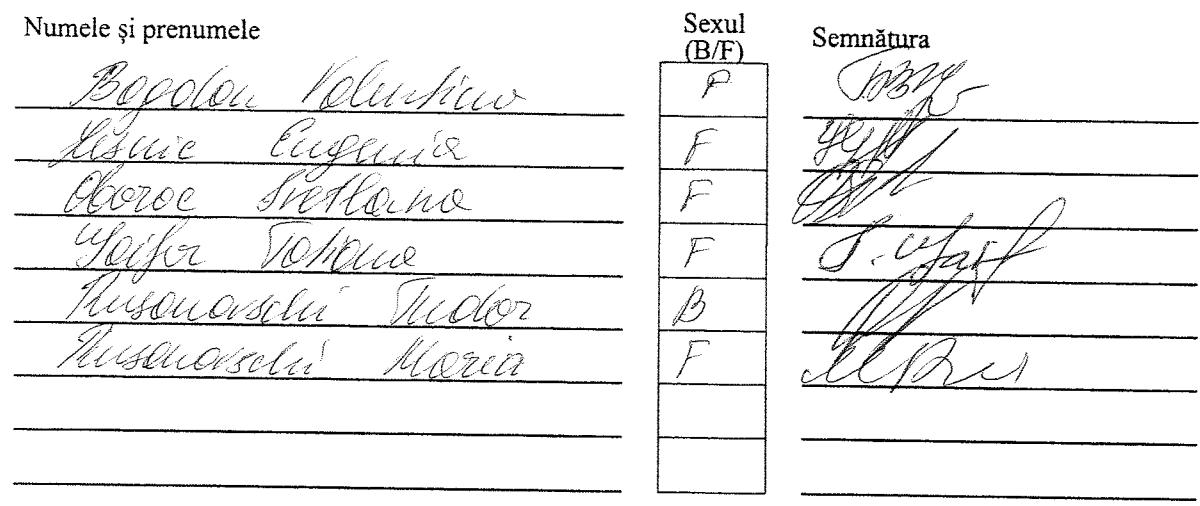 Numele și prenumele Sexul (B/F) Semnătura
Bogdan Valentina F
Lesnic Eugenia F
Oboroc Svetlana F
Tatiana F
Rusanovschi Tudor B
Rusanovschi Maria F